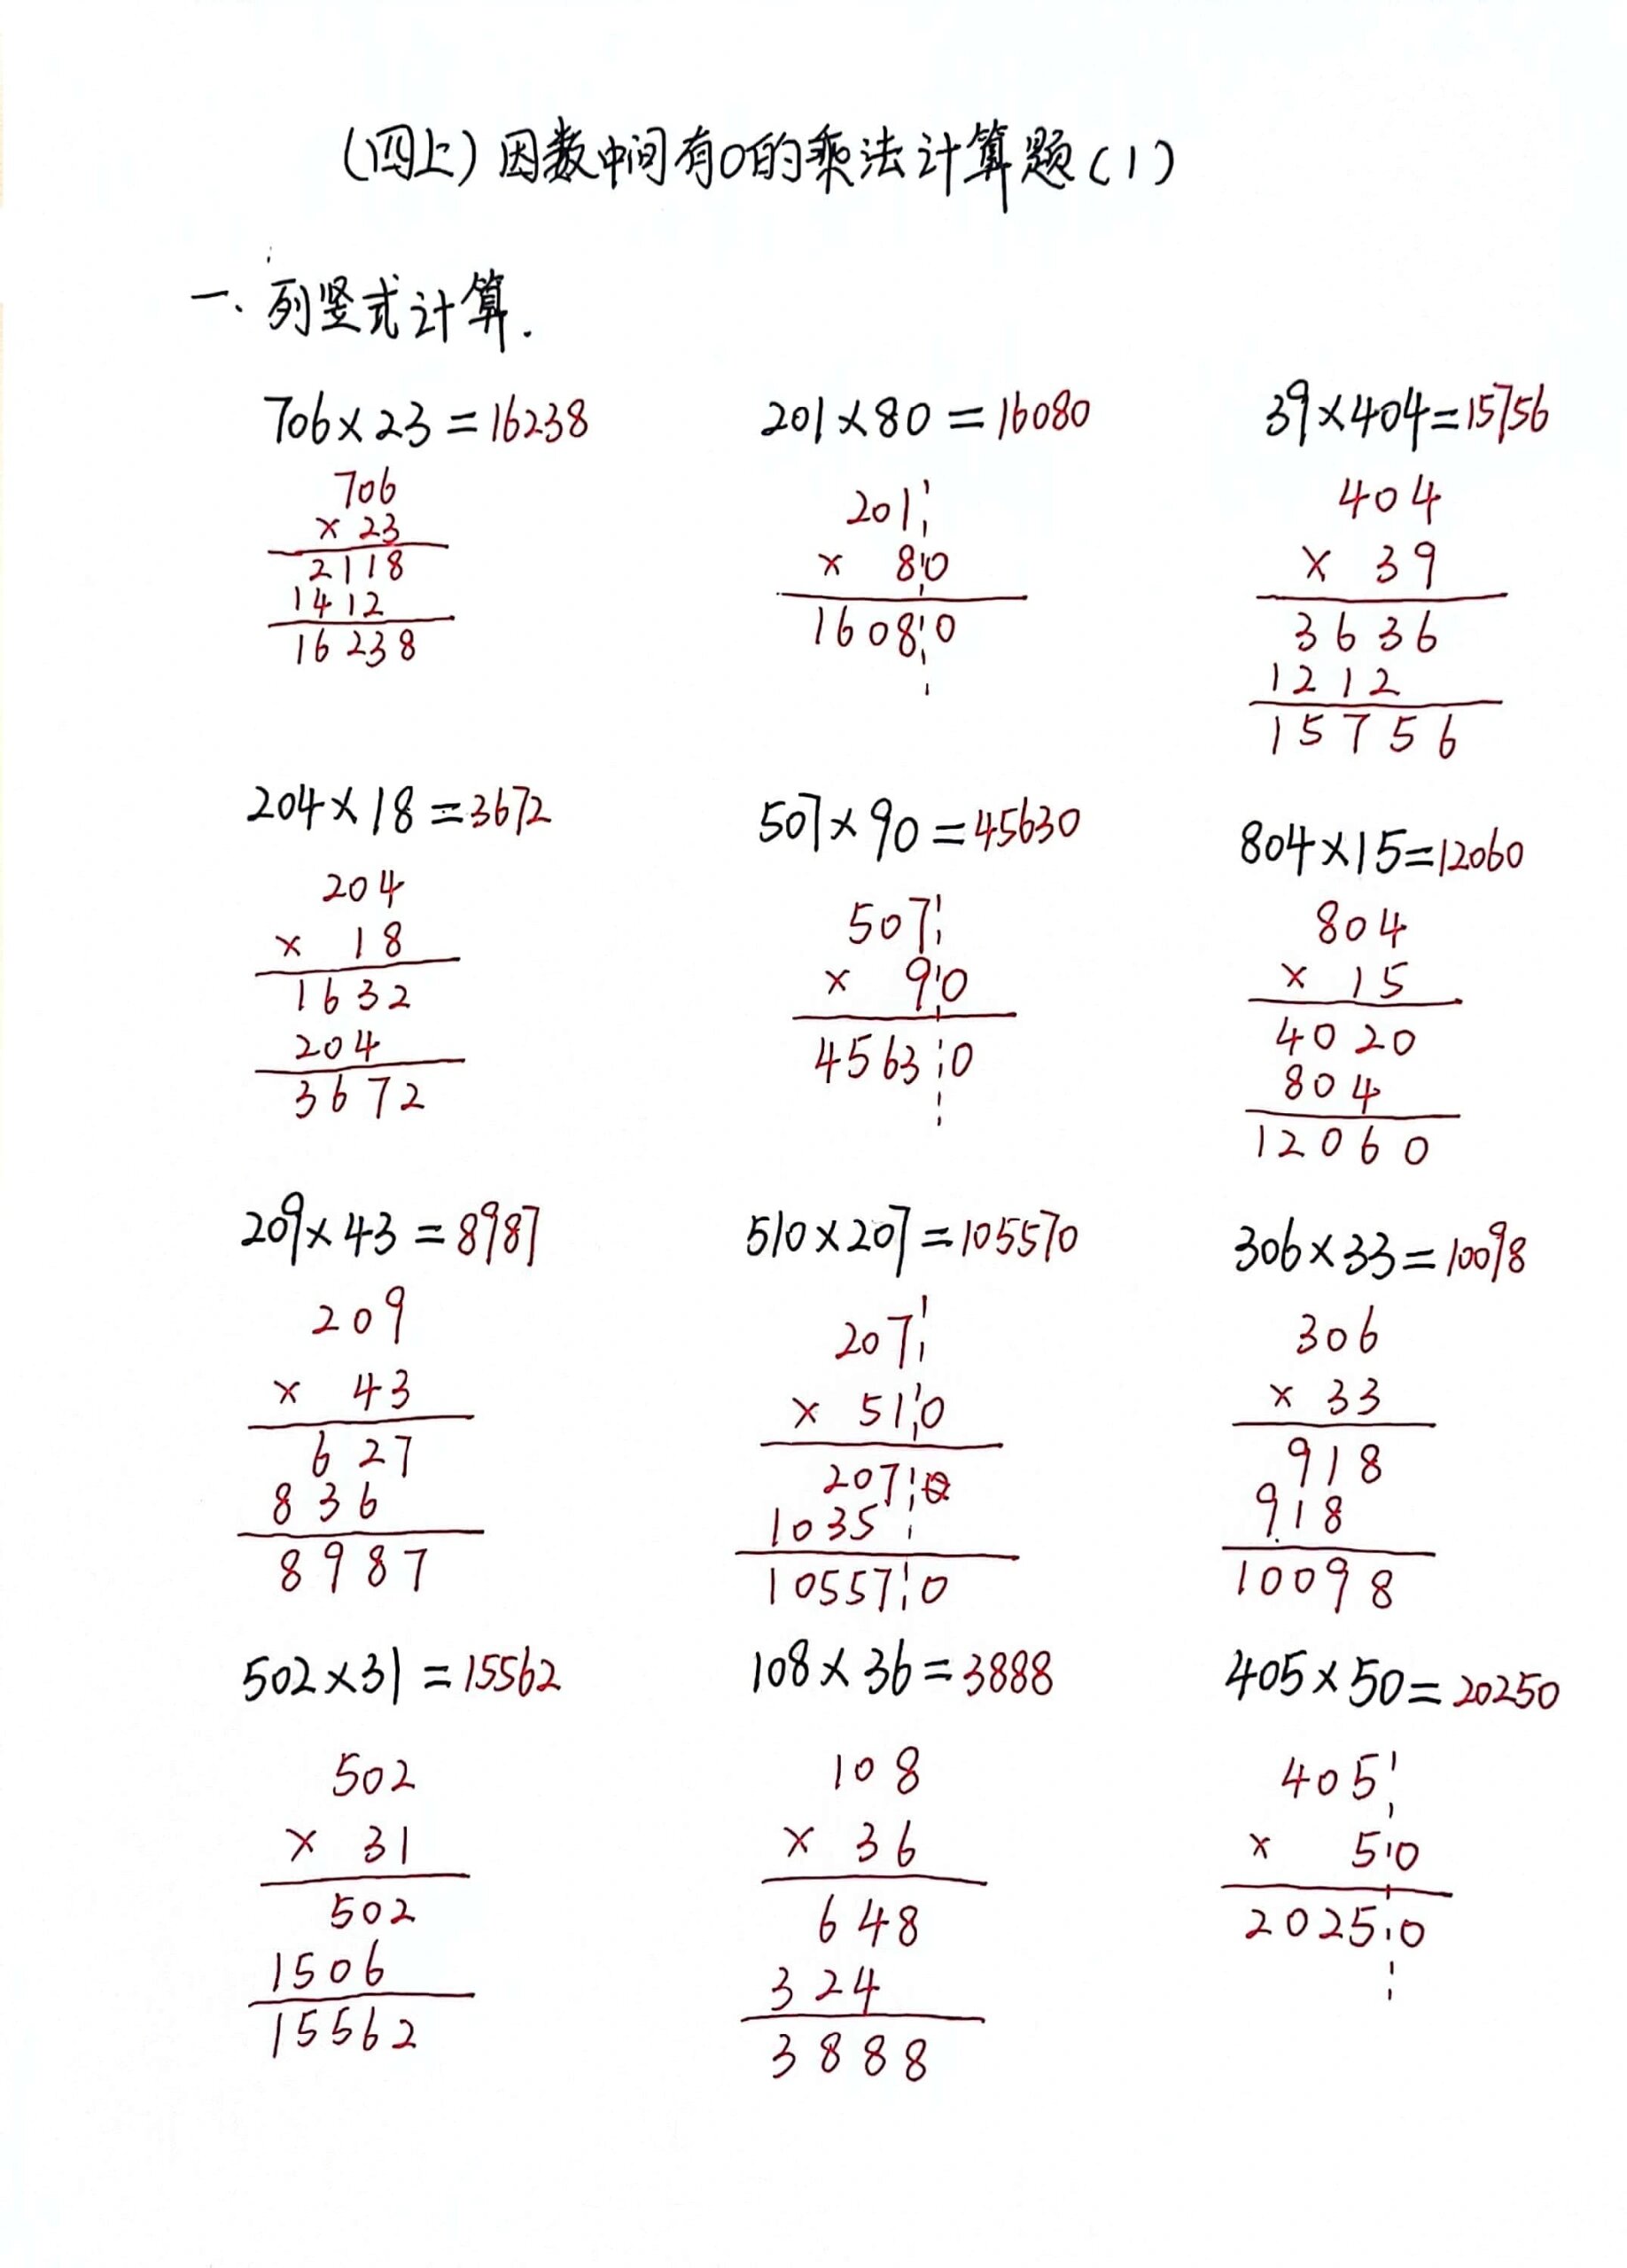 (四上)因数中间有0的乘法计算题(1)
一、列竖式计算.
706×23=16238
706
× 23
2118
1412
16238
201×80=16080
201
× 80
16080
39×404=15756
404
× 39
3636
1212
15756
204×18=3672
204
× 18
1632
204
3672
507×90=45630
507
× 90
45630
804×15=12060
804
× 15
4020
804
12060
209×43=8987
209
× 43
627
836
8987
510×207=105570
207
× 510
207
1035
105570
306×33=10098
306
× 33
918
918
10098
502×31=15562
502
× 31
502
1506
15562
108×36=3888
108
× 36
648
324
3888
405×50=20250
405
× 50
20250